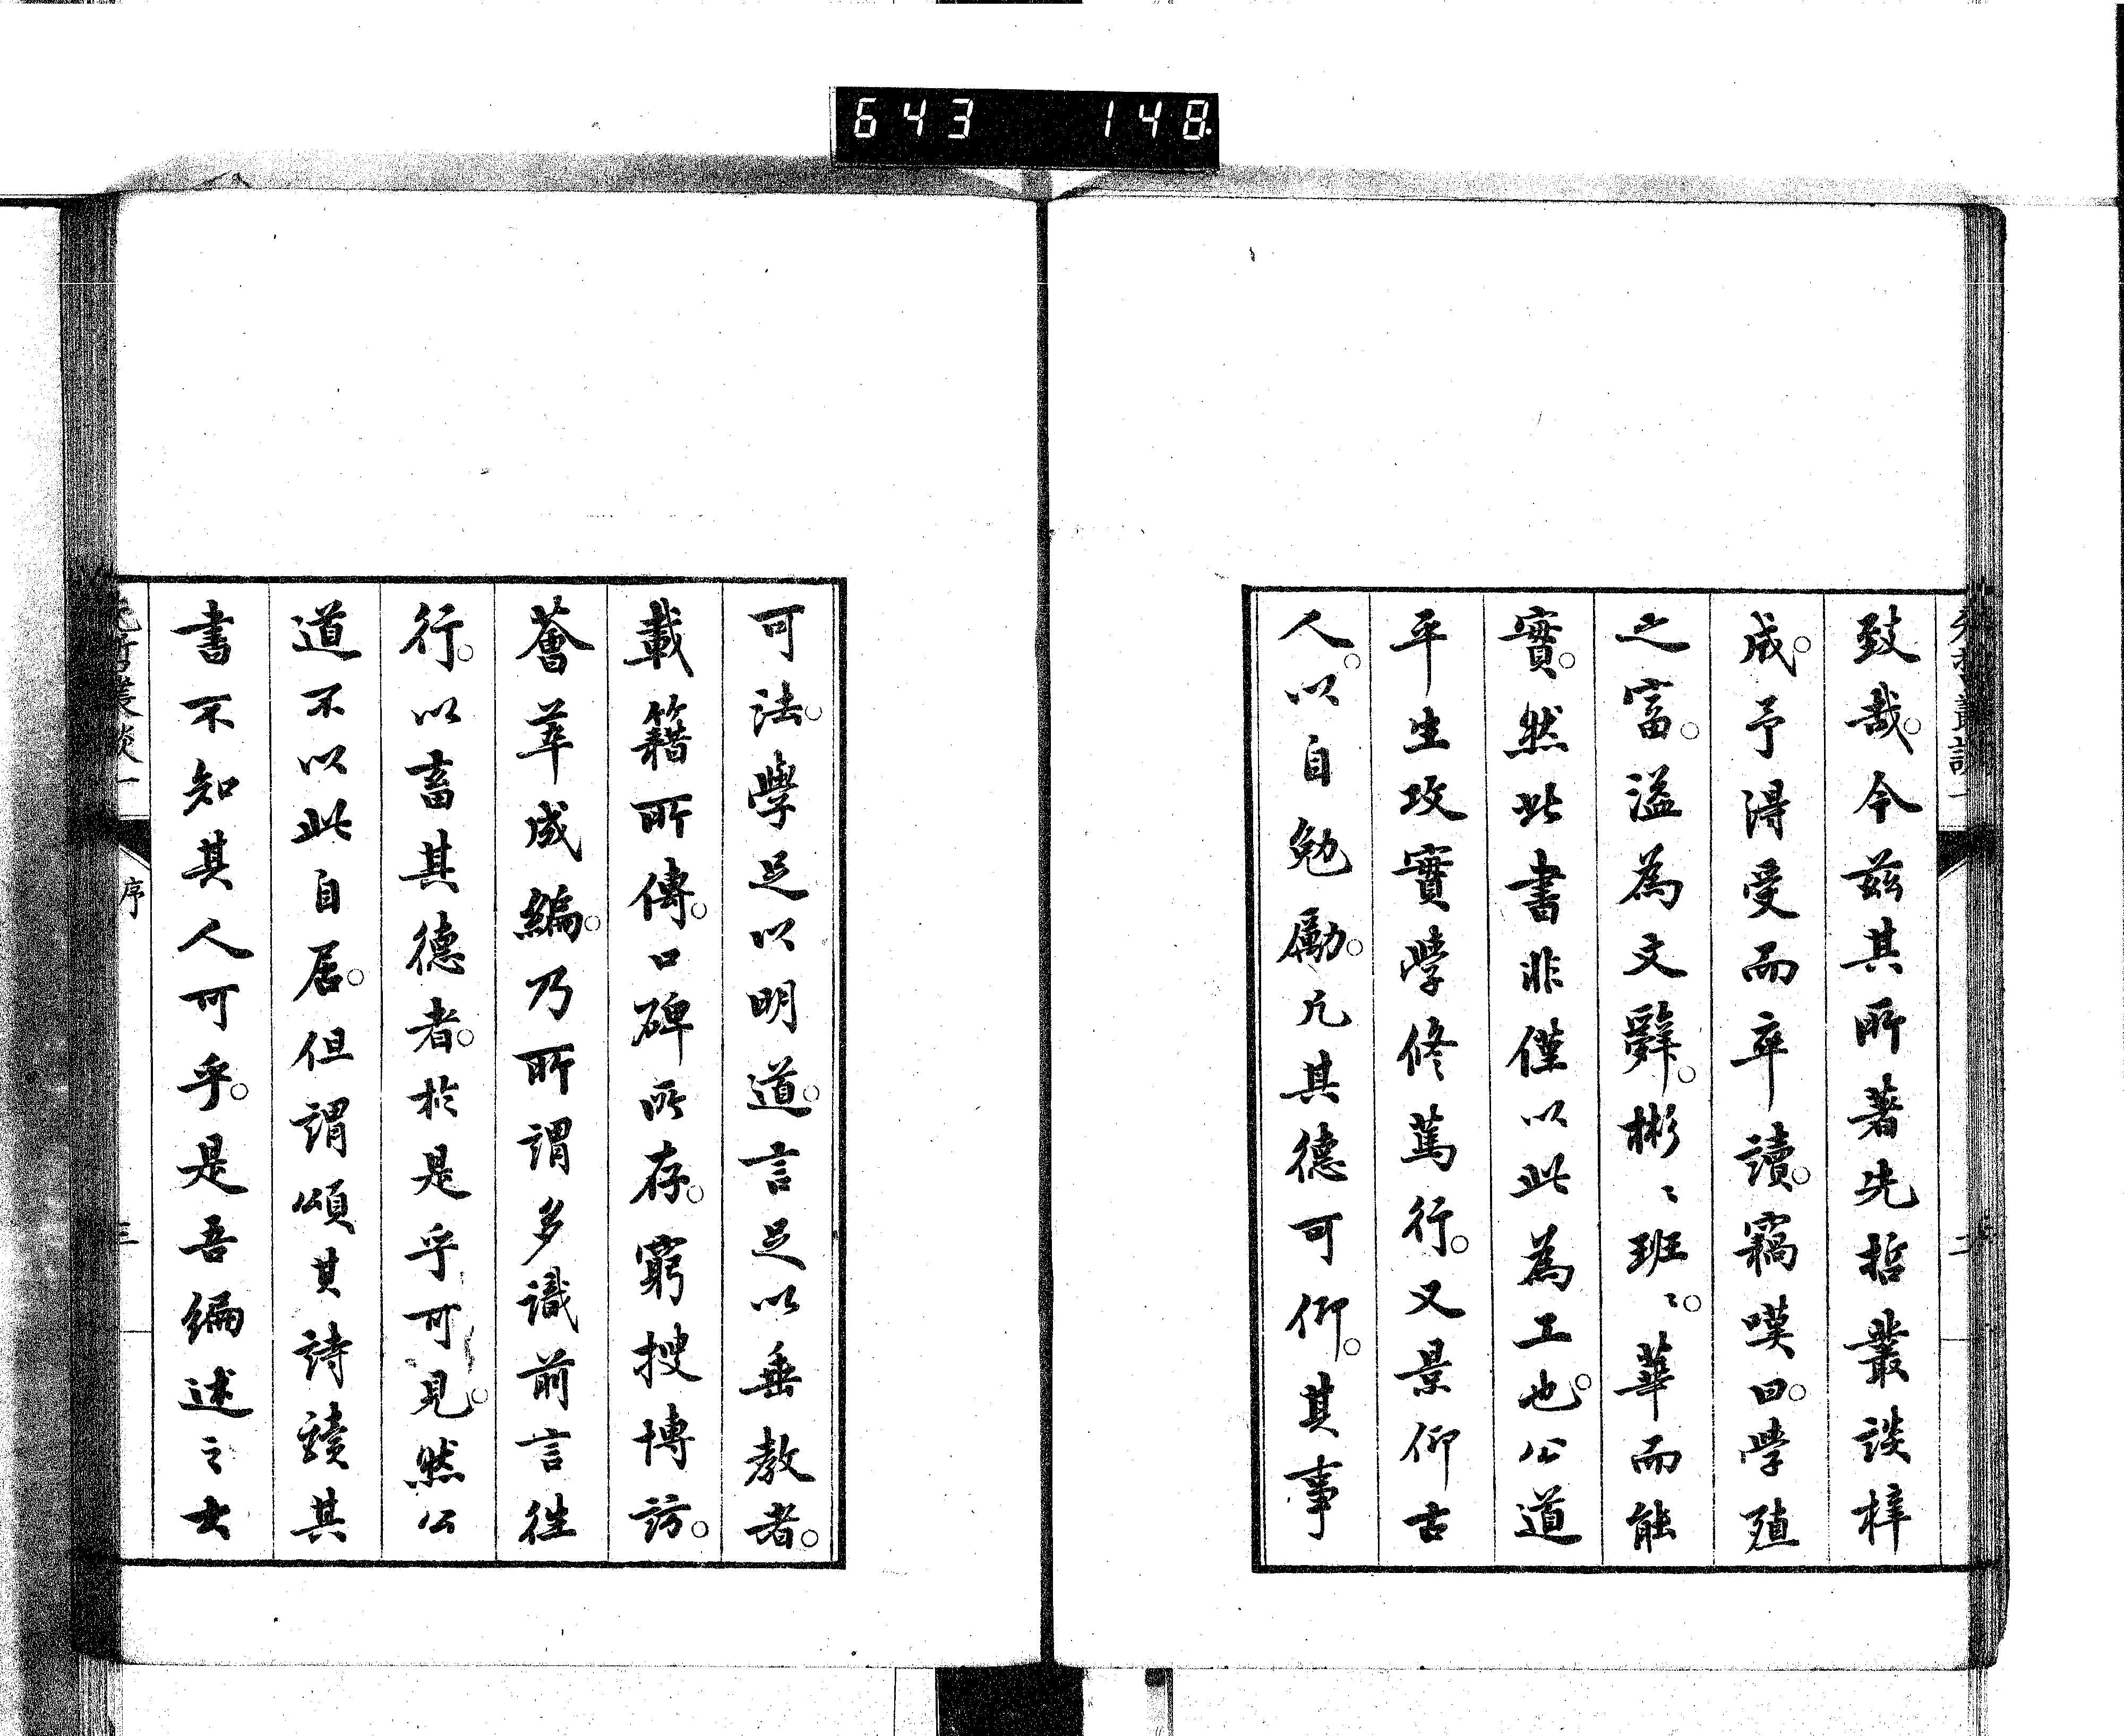 643 148.
致哉。今茲其所著先哲叢談梓
成。予得受而卒讀。竊嘆曰。學殖
之富。溢為文辭。彬〻班〻。華而能
實。然此書非僅以此為工也。公道
平生攻實學修篤行。又景仰古
人。以自勉勵。凡其德可仰。其事
可法。學足以明道。言足以垂教者。
載籍所傳。口碑所存。窮搜博訪。
薈萃成編。乃所謂多識前言往
行。以畜其德者。於是乎可見。然公
道不以此自居。但謂頌其詩讀其
書不知其人可乎。是吾編述之大
先哲叢談一
序
三